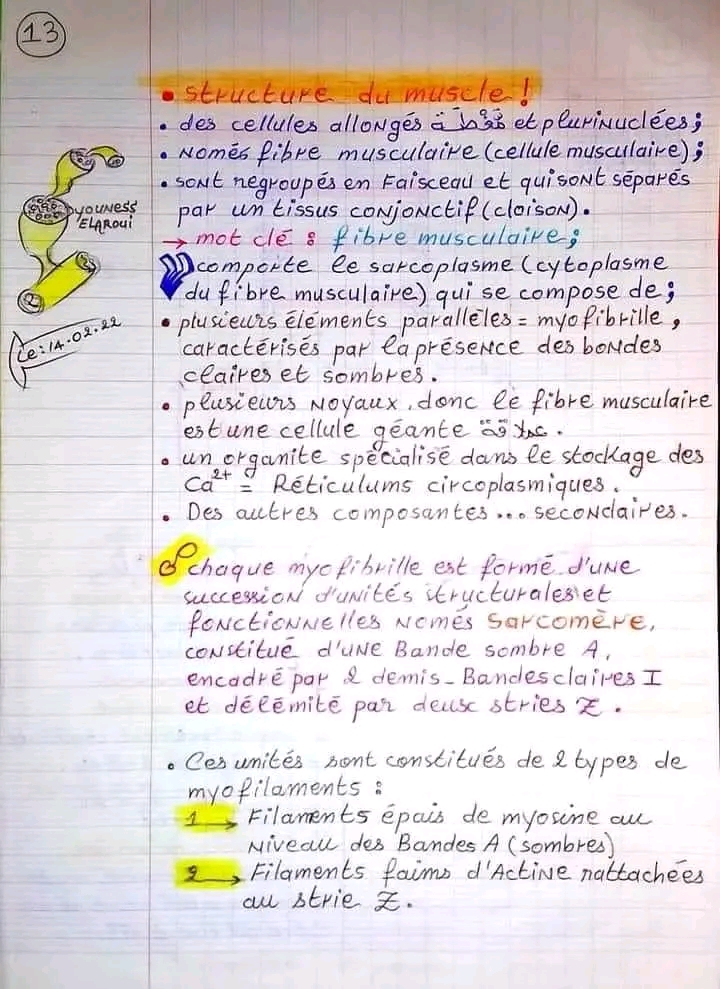 13
• structure du muscle !
• des cellules allongés مُخَطَّطَة et plurinuclées ;
• Només fibre musculaire (cellule musculaire) ;
• sont regroupés en Faisceau et qui sont séparés
par un tissus conjonctif (cloison).
→ mot clé : fibre musculaire ;
comporte le sarcoplasme (cytoplasme
du fibre musculaire) qui se compose de ;
• plusieurs éléments parallèles = myofibrille,
caractérisés par la présence des bondes
claires et sombres.
• plusieurs Noyaux, donc le fibre musculaire
est une cellule géante عملاقة.
• un organite spécialisé dans le stockage des
Ca²⁺ = Réticulums circoplasmiques.
• Des autres composantes ... secondaires.
chaque myofibrille est formé d'une
succession d'unités structurales et
fonctionnelles Només Sarcomère,
constitué d'une Bande sombre A,
encadré par 2 demis-Bandes claires I
et délémité par deux stries Z.
• Ces unités sont constitués de 2 types de
myofilaments :
1 → Filaments épais de myosine au
Niveau des Bandes A (sombres)
2 → Filaments faims d'Actine rattachées
au strie Z.
YOUNESS
ELAROUI
Le : 14.02.22